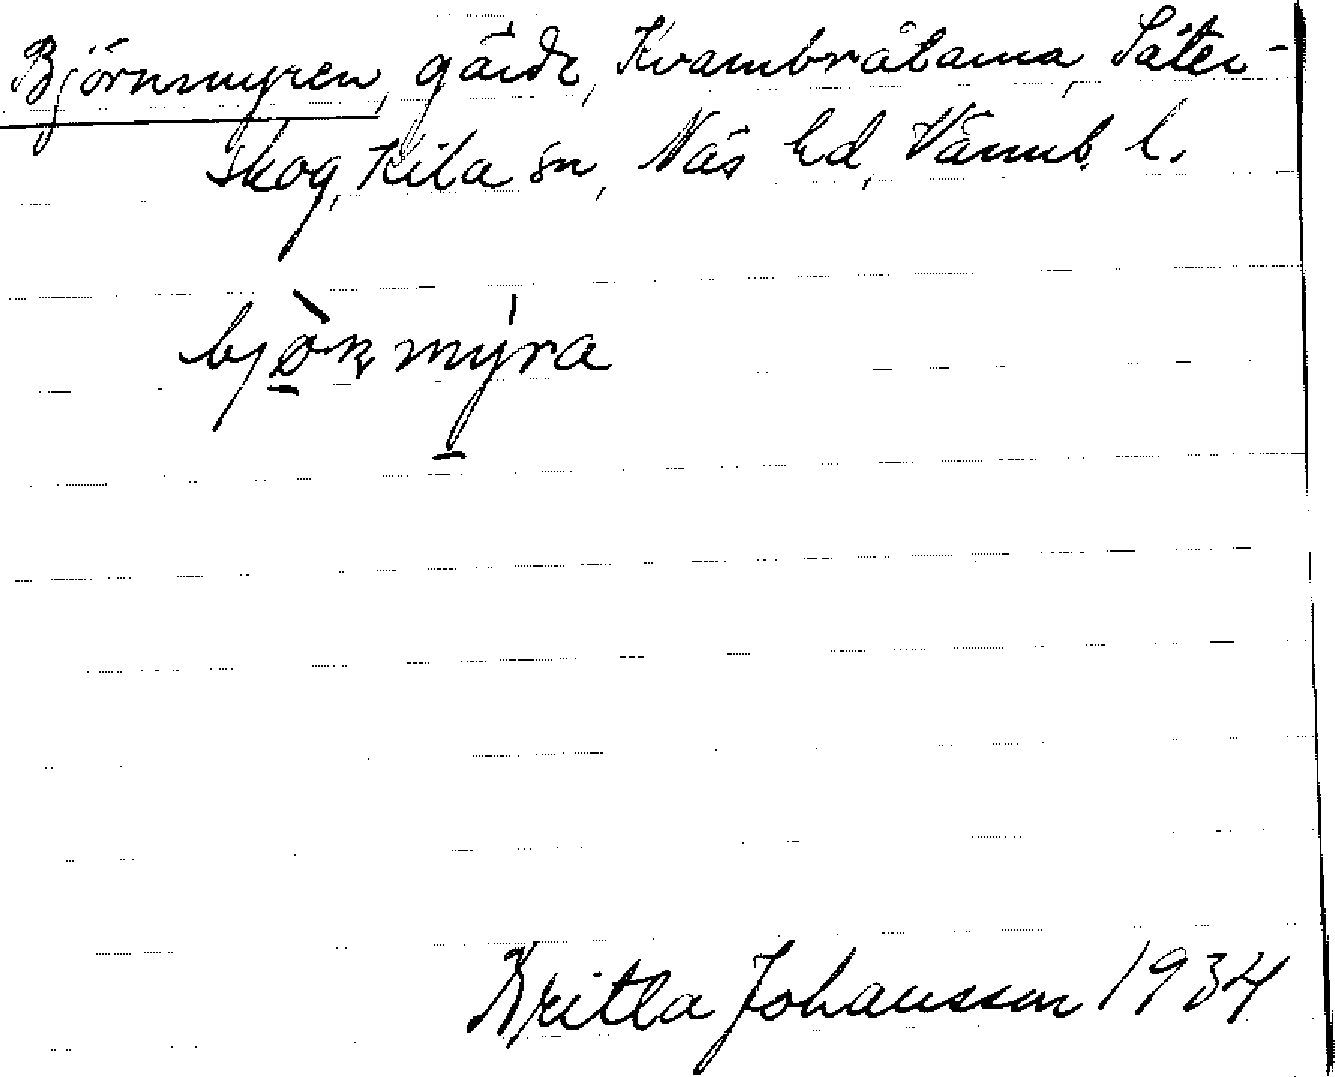 Björnmyren, gärde, Kvambråtarna, Säter-
skog, Kila sn, Näs hd, Värml. l.
bjò̱ɳmy̱̍ra
Britta Johansson 1934